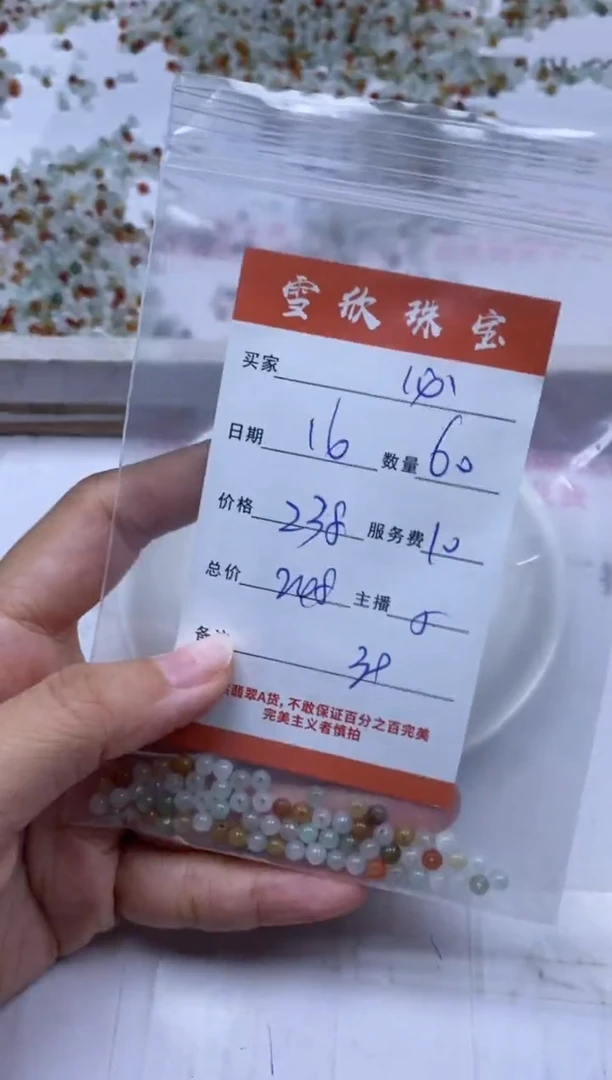 雪欣珠宝
买家
日期 16 数量 60
价格 238 服务费 10
总价 248 主播
备注
翡翠A货，不敢保证百分之百完美
完美主义者慎拍